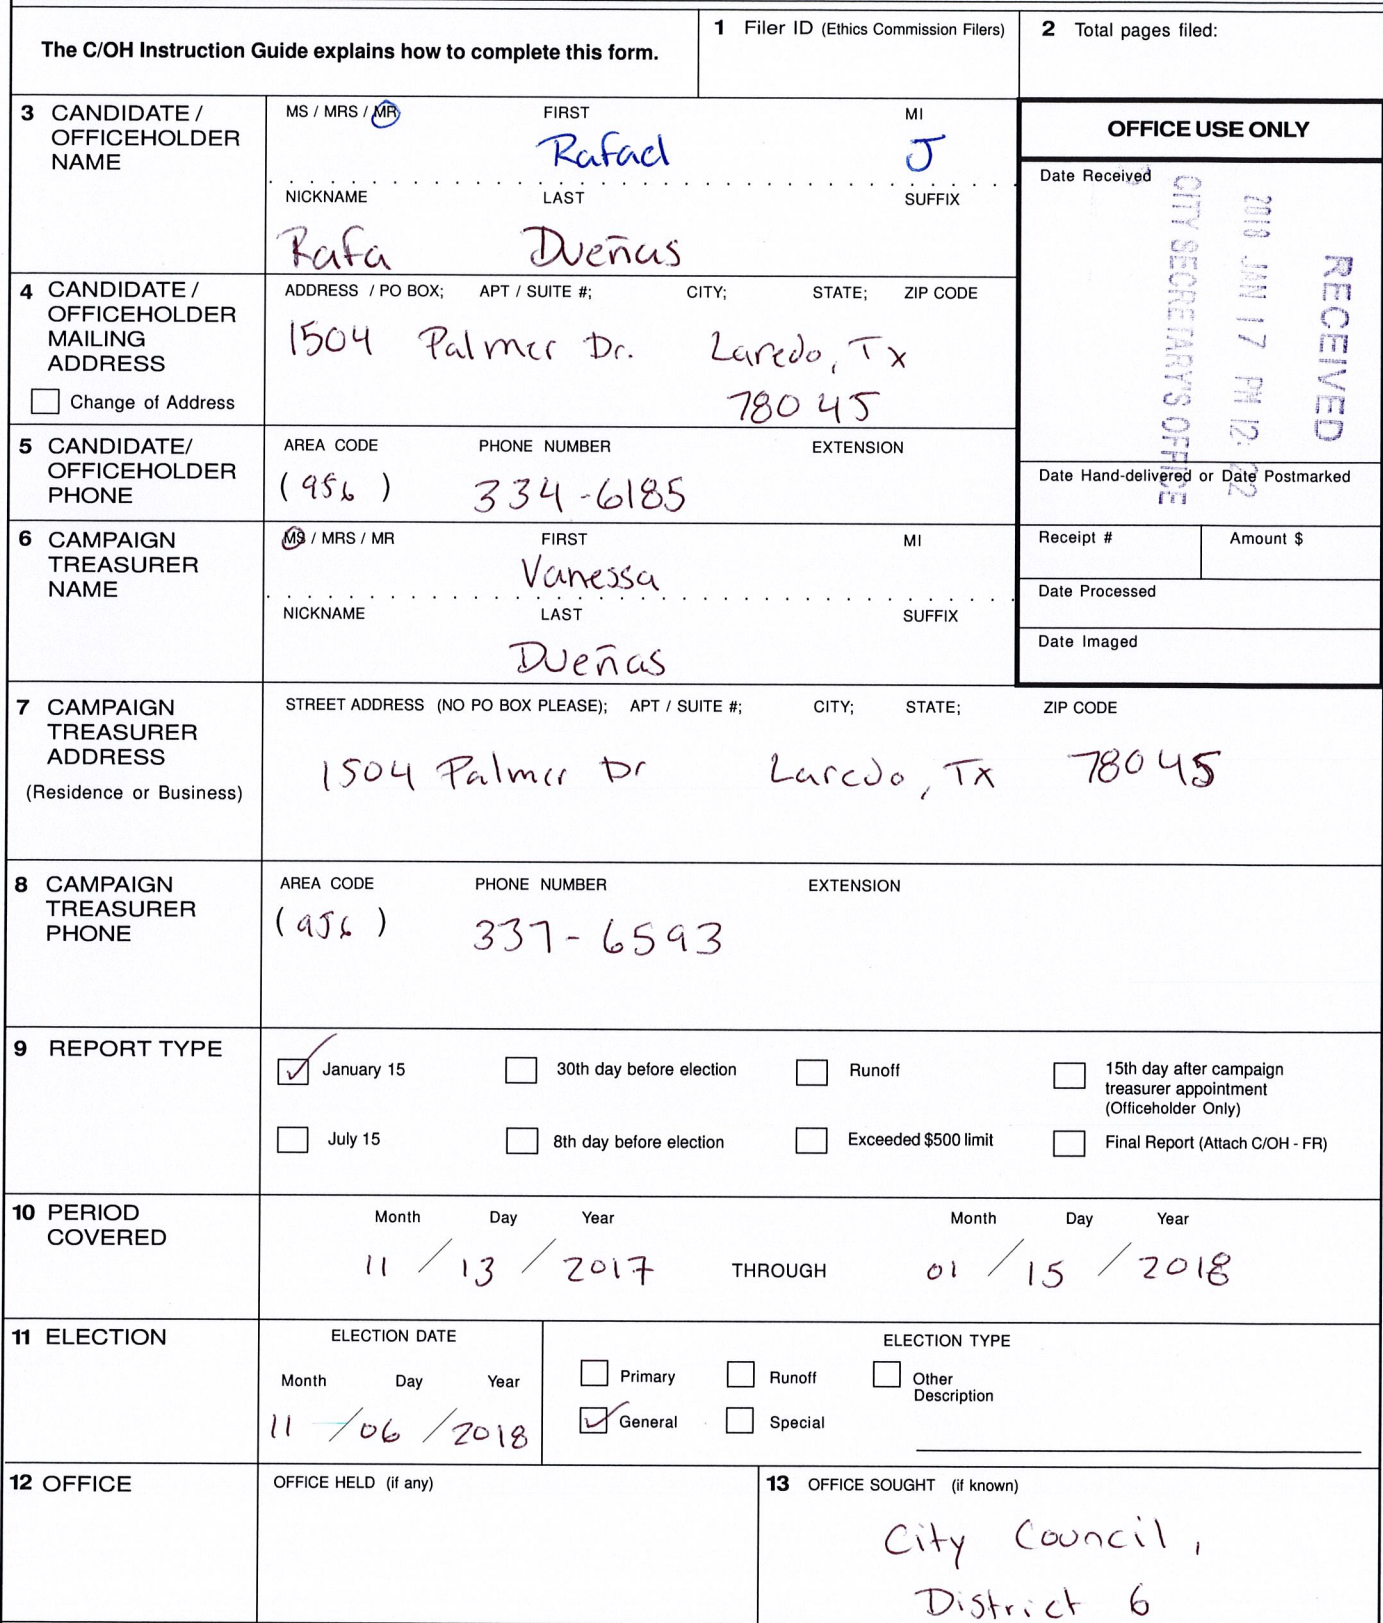 The C/OH Instruction Guide explains how to complete this form.
1 Filer ID (Ethics Commission Filers)
2 Total pages filed:
3 CANDIDATE / OFFICEHOLDER NAME
MS / MRS / MR
FIRST
MI
Rafael
J
NICKNAME
LAST
SUFFIX
Rafa
Dueñas
OFFICE USE ONLY
Date Received
RECEIVED
2018 JAN 17 PM 12:22
CITY SECRETARY'S OFFICE
Date Hand-delivered or Date Postmarked
Receipt #
Amount $
Date Processed
Date Imaged
4 CANDIDATE / OFFICEHOLDER MAILING ADDRESS
Change of Address
ADDRESS / PO BOX; APT / SUITE #; CITY; STATE; ZIP CODE
1504 Palmer Dr. Laredo, Tx
78045
5 CANDIDATE/ OFFICEHOLDER PHONE
AREA CODE
PHONE NUMBER
EXTENSION
(956) 334-6185
6 CAMPAIGN TREASURER NAME
MS / MRS / MR
FIRST
MI
Vanessa
NICKNAME
LAST
SUFFIX
Dueñas
7 CAMPAIGN TREASURER ADDRESS
(Residence or Business)
STREET ADDRESS (NO PO BOX PLEASE); APT / SUITE #; CITY; STATE; ZIP CODE
1504 Palmer Dr Laredo, Tx 78045
8 CAMPAIGN TREASURER PHONE
AREA CODE
PHONE NUMBER
EXTENSION
(956) 337-6593
9 REPORT TYPE
January 15
30th day before election
Runoff
15th day after campaign treasurer appointment (Officeholder Only)
July 15
8th day before election
Exceeded $500 limit
Final Report (Attach C/OH - FR)
10 PERIOD COVERED
Month Day Year
Month Day Year
11 / 13 / 2017 THROUGH 01 / 15 / 2018
11 ELECTION
ELECTION DATE
Month Day Year
11 / 06 / 2018
ELECTION TYPE
Primary
Runoff
Other Description
General
Special
12 OFFICE
OFFICE HELD (if any)
13 OFFICE SOUGHT (if known)
City Council,
District 6